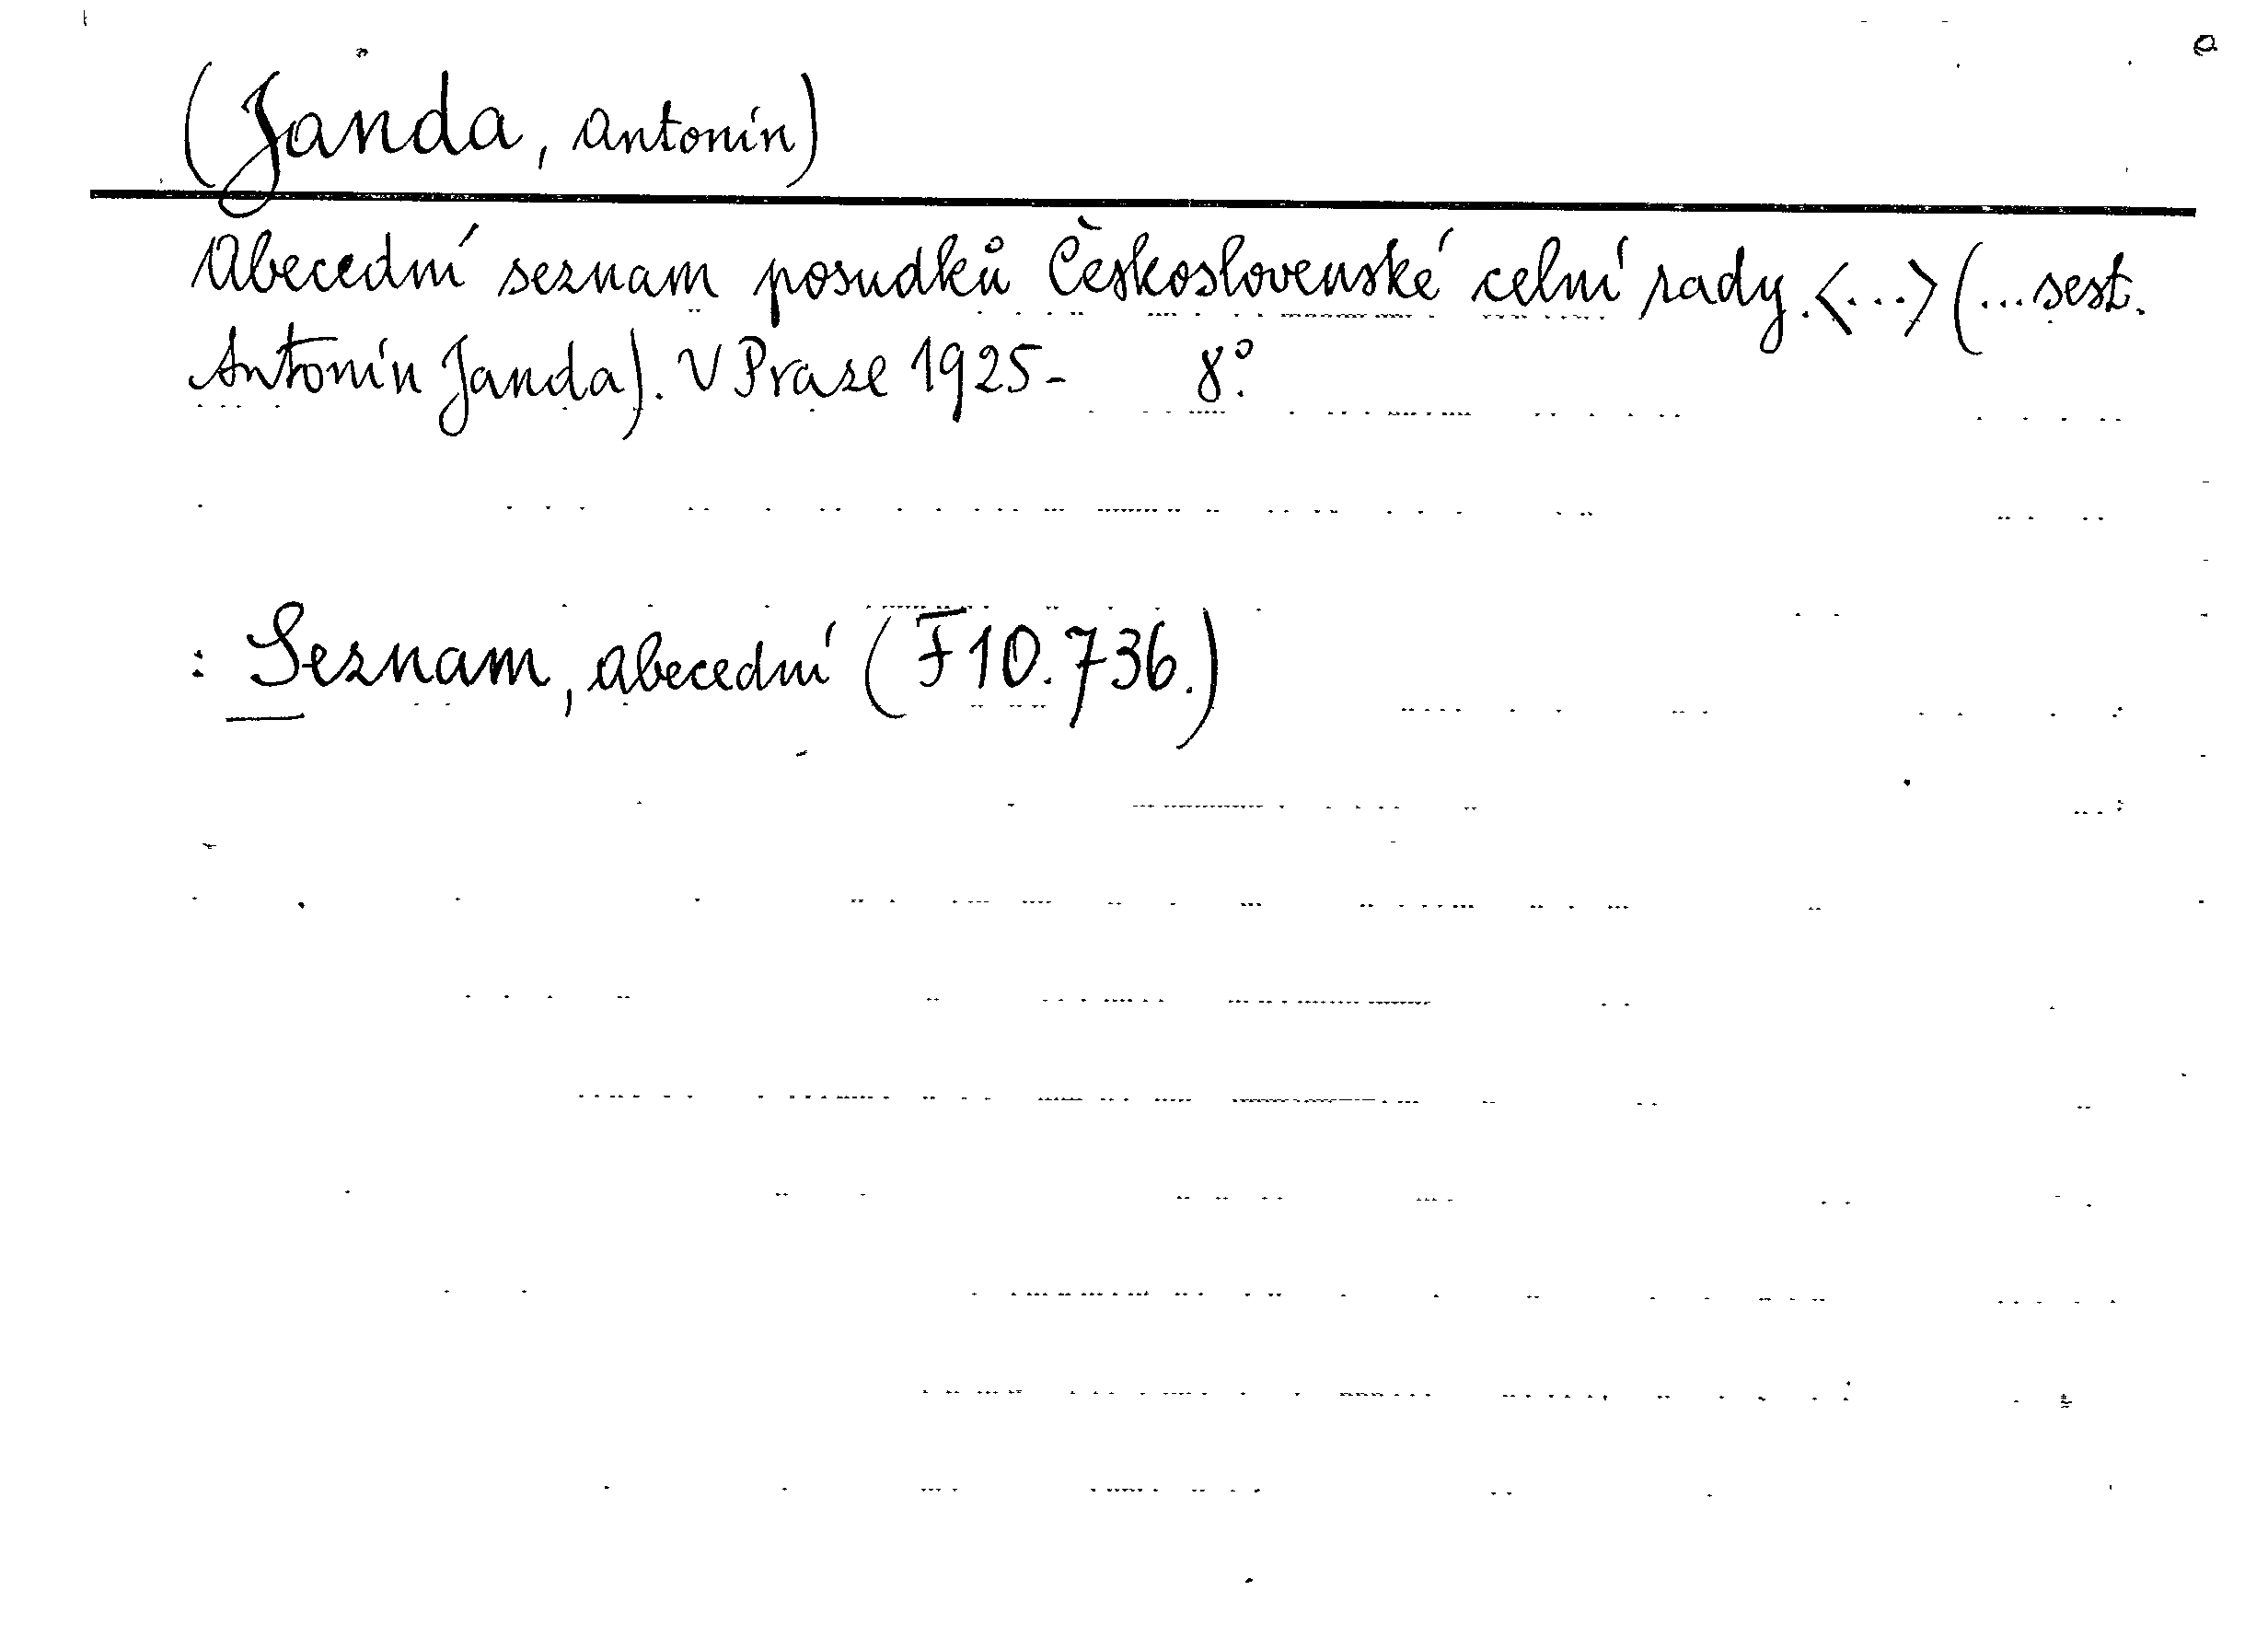 (Janda, Antonín)
Abecední seznam posudků Československé celní rady. <...> (...sest.
Antonín Janda). V Praze 1925- 8°.
: Seznam, abecední (F 10.736.)